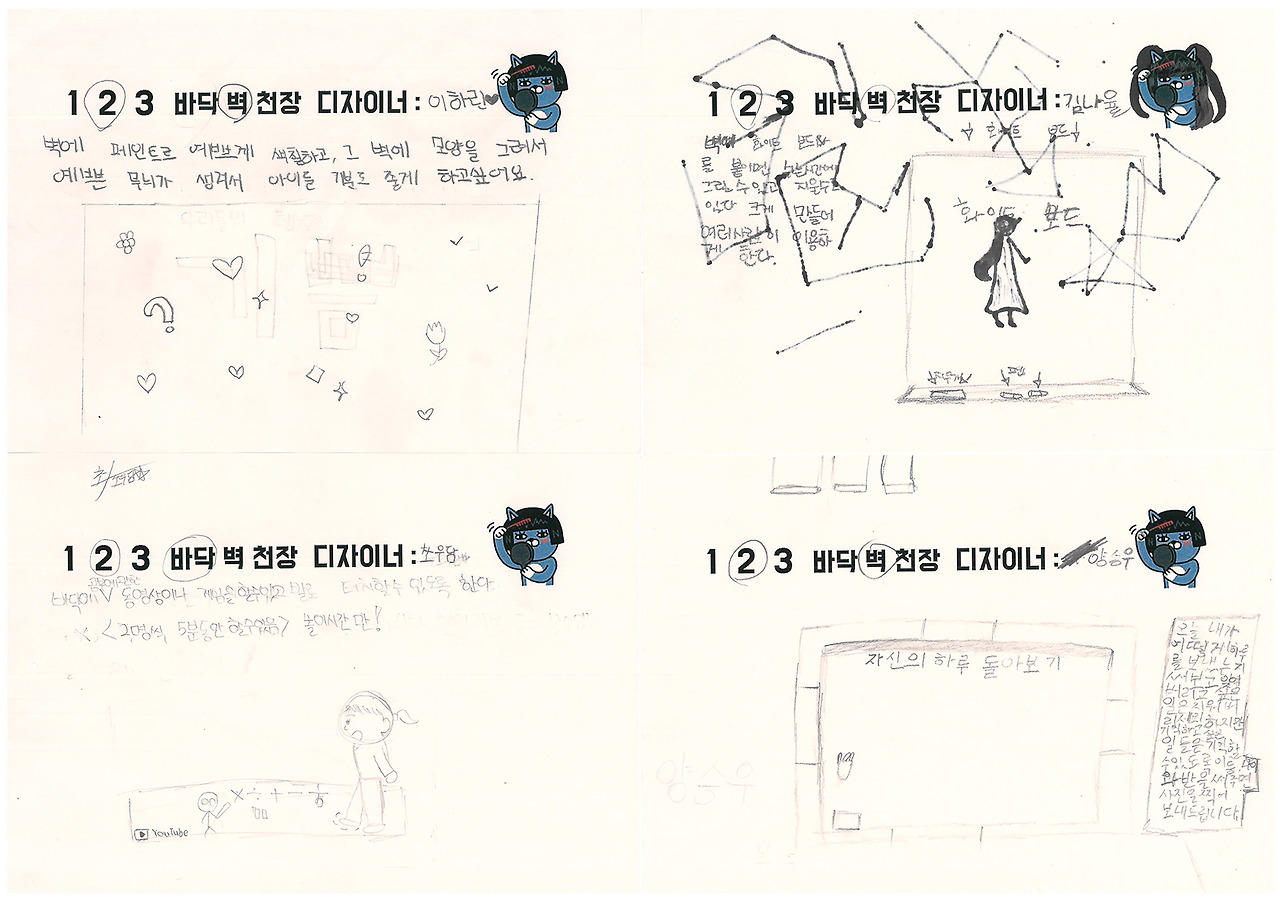 1 2 3 바닥 벽 천장 디자이너 : 이하린
벽에 페인트로 예쁘게 색칠하고, 그 벽에 모양을 그려서
예쁜 무늬가 생겨서 아이들 기분도 좋게 하고싶어요.
1 2 3 바닥 벽 천장 디자이너 : 김나율
화이트 보드
벽에 화이트 보드
를 붙이면
그릴 수 있고 지울수도
있다 크게 만들어
여러사람이 이용하
게 한다.
화이트 보드
지우개
펜
1 2 3 바닥 벽 천장 디자이너 :
바닥에 동영상이나 게임을 할수있고 발로 터치할수 있도록 한다
<2명씩 5분동안 할수있음> 놀이시간만!
× ÷ + −
YouTube
1 2 3 바닥 벽 천장 디자이너 : 양승우
자신의 하루 돌아보기
오늘 내가
어떻게 하루
를 보냈는지
써보고 잊어
버리고 싶은
일은 지워버
리세요 하지만
기억하고 싶은
일들은 기억할
수있도록 이름과
반을 써주면
사진을 찍어
보내드립니다
양승우